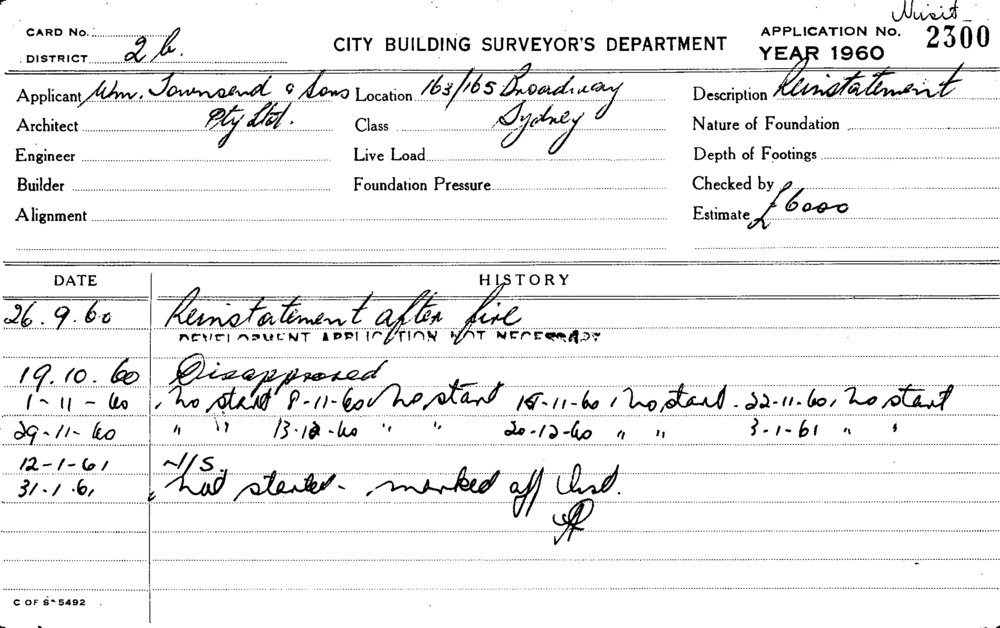 CARD No.
DISTRICT 2b.
CITY BUILDING SURVEYOR'S DEPARTMENT
APPLICATION No. 2300
YEAR 1960
Applicant Wm. Townsend & Sons
Pty Ltd.
Location 163/165 Broadway
Sydney
Description Reinstatement
Architect
Class
Nature of Foundation
Engineer
Live Load
Depth of Footings
Builder
Foundation Pressure
Checked by
Alignment
Estimate £6000
DATE HISTORY
26.9.60 Reinstatement after fire
DEVELOPMENT APPLICATION NOT NECESSARY
19.10.60 Disapproved
1-11-60 No start 8-11-60 No start 15-11-60 No start. 22-11-60, No start
29-11-60 " " 13-12-60 " " 20-12-60 " " 3-1-61 " "
12-1-61 N/S.
31.1.61 Not started - marked off list.
C OF S 5492